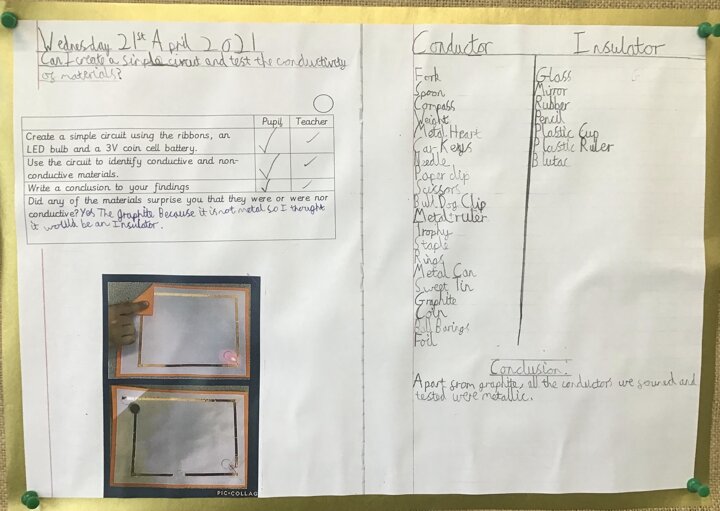 Wednesday 21st April 2021
Can I create a simple circuit and test the conductivity
of materials?
Pupil Teacher
Create a simple circuit using the ribbons, an
LED bulb and a 3V coin cell battery.
Use the circuit to identify conductive and non-
conductive materials.
Write a conclusion to your findings
Did any of the materials surprise you that they were or were nor
conductive? Yes The graphite Because it is not metal so I thought
it would be an Insulator.
PIC•COLLAG
Conductor Insulator
Fork Glass
Spoon Mirror
Compass Rubber
Weight Pencil
Metal Heart Plastic Cup
Car Keys Plastic Ruler
Needle Blutac
Paper clip
Scissors
Bull Dog Clip
Metal ruler
Trophy
Staple
Rings
Metal Can
Sweet Tin
Graphite
Coin
Ball Barings
Foil
Conclusion:
Apart from graphite, all the conductors we found and
tested were metallic.